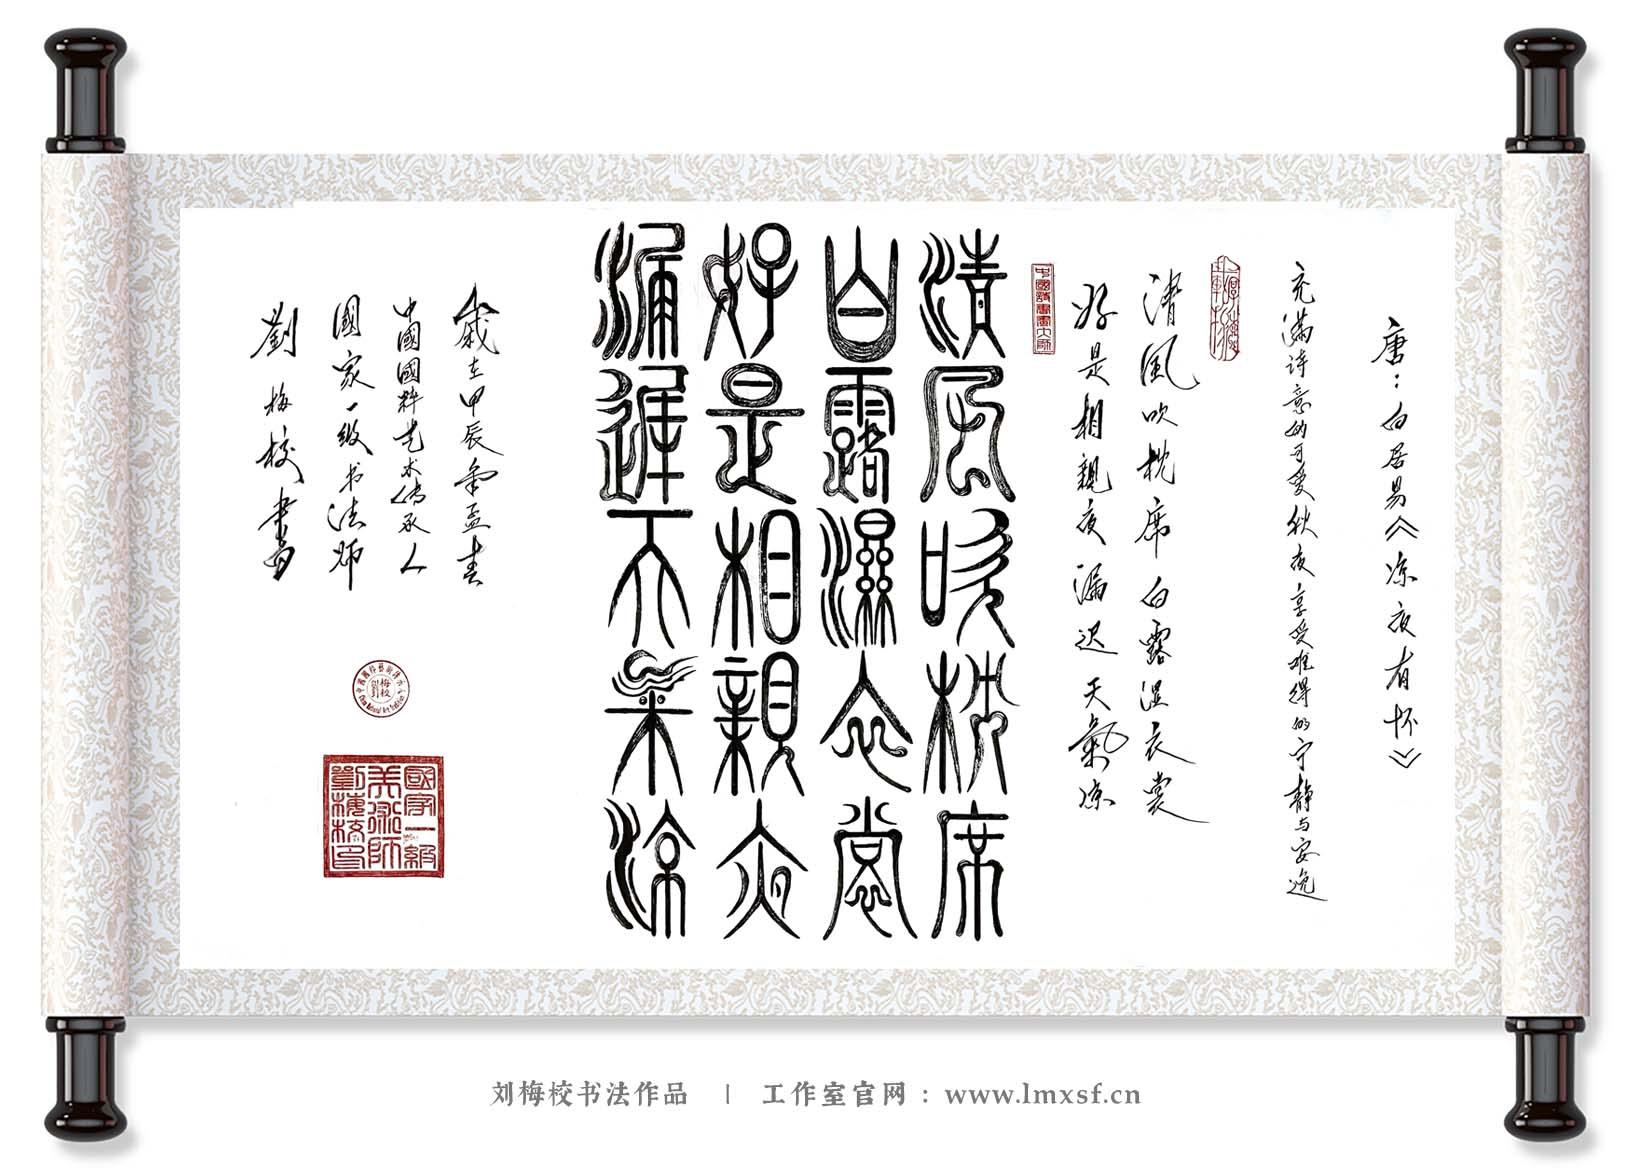 唐：白居易《凉夜有怀》
充满诗意的可爱秋夜享受难得的宁静与安逸
清风吹枕席白露湿衣裳
好是相親夜漏迟天氣凉
中國詩書畫大师
清风吹枕席
白露濕衣裳
好是相親夜
漏遲天氣涼
歲在甲辰年孟春
中國國粹艺术传承人
國家一级书法师
劉梅校書
國家一級
美術师
劉梅校印
刘梅校书法作品 | 工作室官网：www.lmxsf.cn